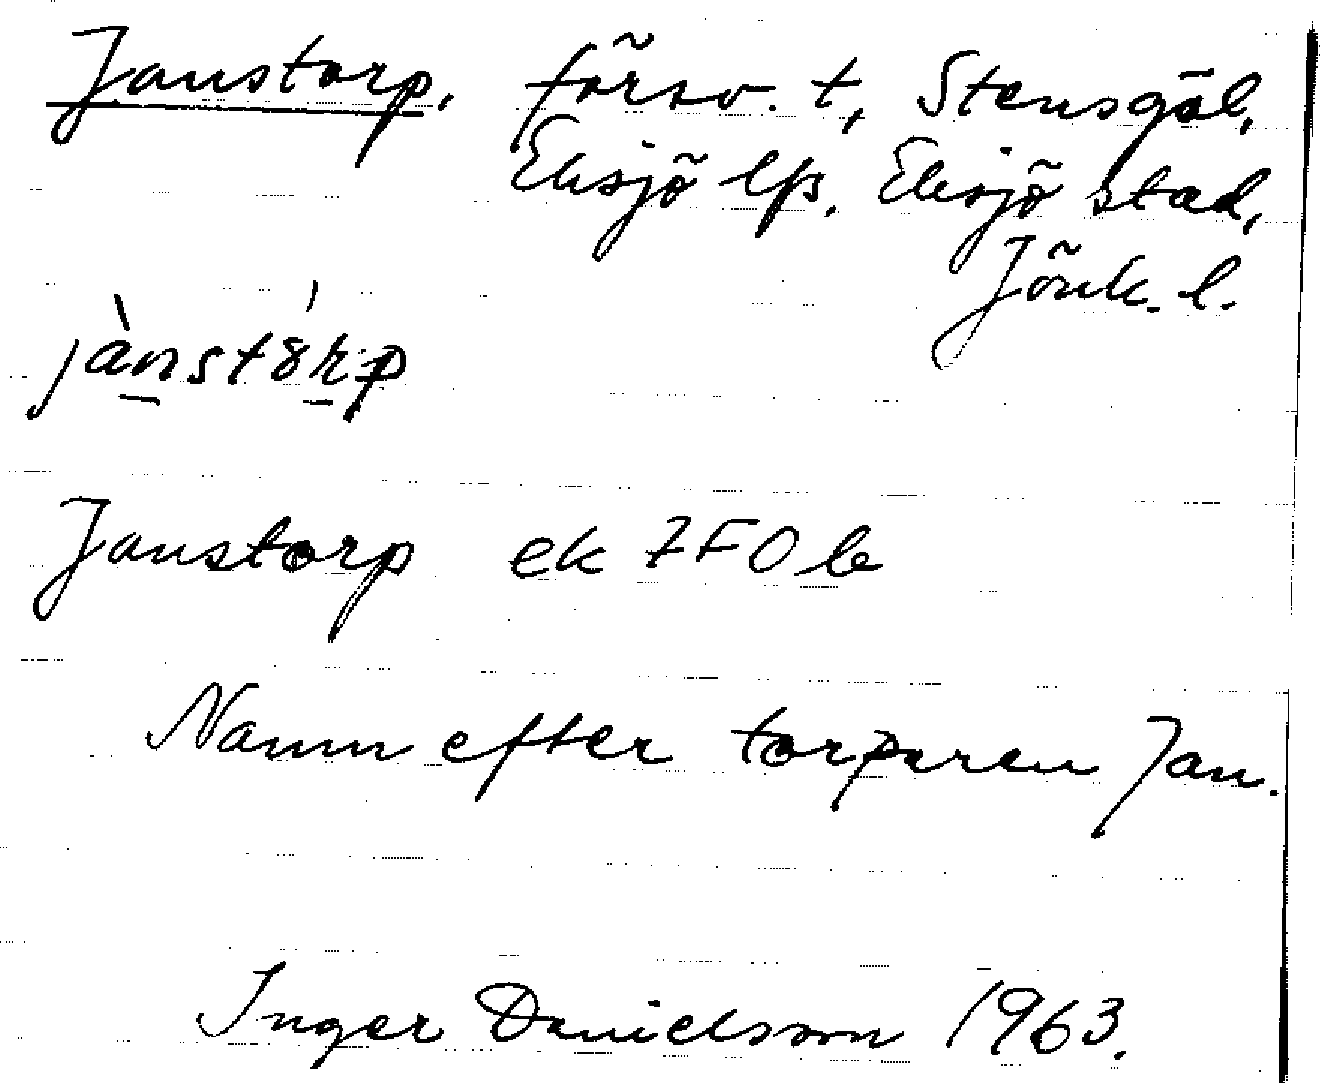 Janstorp, försv. t, Stensgöl,
Eksjö lfs. Eksjö stad,
Jönk. l.
jànstórp
Janstorp ek 7F0b
Namn efter torparen Jan.
Inger Danielsson 1963.